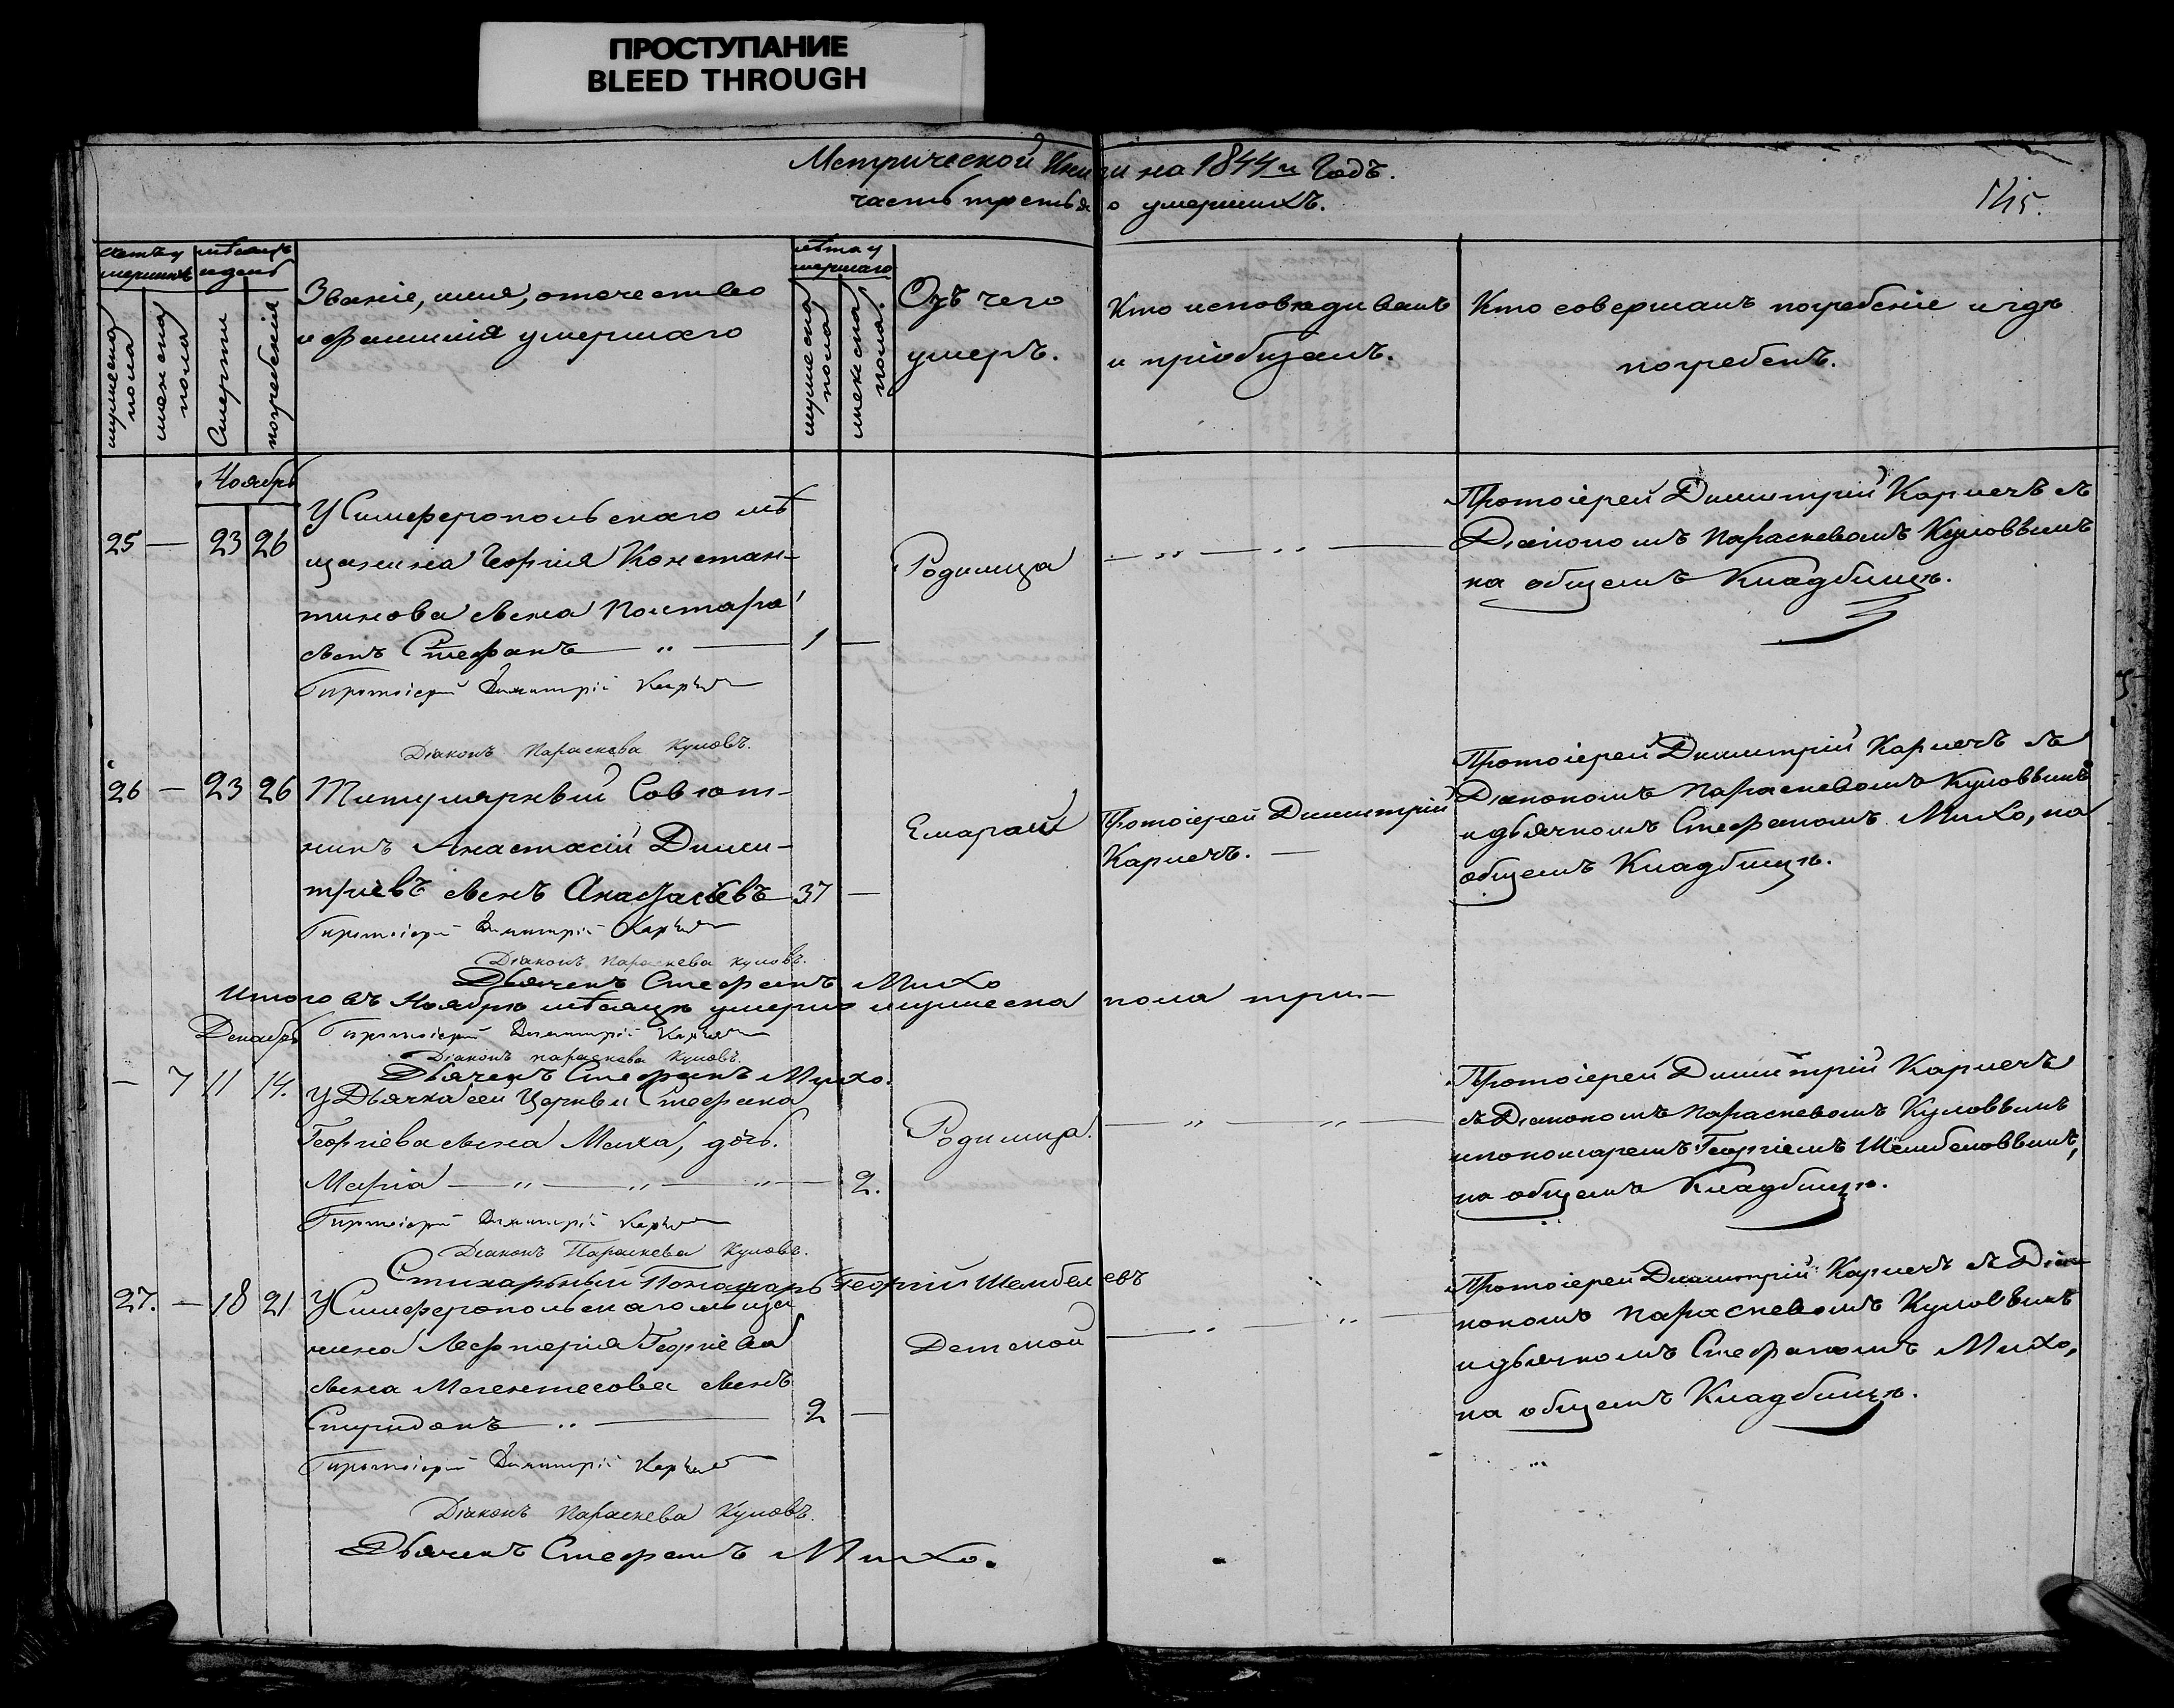 ПРОСТУПАНИЕ
BLEED THROUGH
Метрической Книги на 1844й Годъ.
часть третья о умершихъ.
145.
счетъ умершихъ
мѣсяцъ и день
Званіе, имя, отечество
и фамилія умершаго
лѣта умершаго
Отъ чего
умеръ.
Кто исповѣдивалъ
и пріобщалъ.
Кто совершалъ погребеніе и гдѣ
погребенъ.
мужеска пола
женска пола
Смерти
погребенія
мужеска пола
женска пола.
Ноябрь
25 — 23 26
У Симферопольскаго мѣ
щанина Георгія Констан-
тинова сына
сынъ Стефанъ — „ — 1 —
Родимца
— „ — „ —
Протоіерей Димитрій Карпечъ съ
Діакономъ Параскевомъ Куловымъ
на общемъ Кладбищѣ.
Протоіерей Димитрій
Діаконъ Параскева Куловъ.
26 — 23 26
Титулярный Совѣт-
никъ Анастасій Дими-
тріевъ сынъ Анастасіевъ 37 —
Протоіерей Димитрій
Карпечъ. —
Протоіерей Димитрій Карпечъ съ
Діакономъ Параскевомъ Куловымъ
и дьячкомъ Стефаномъ Михо, на
общемъ Кладбищѣ.
Протоіерей Димитрій
Діаконъ Параскева Куловъ.
Дьячекъ Стефанъ Михо
Итого въ Ноябрѣ мѣсяцѣ умерло мужеска пола три. —
Декабрь
Протоіерей Димитрій
Діаконъ Параскева Куловъ.
Дьячекъ Стефанъ Михо.
— 7 11 14.
У Дьячка сей Церкви Стефана
Георгіева сына Миха, дочь.
Марія — „ — „ — „ — 2.
Родимца.
— „ — „ —
Протоіерей Димитрій Карпечъ
съ Діакономъ Параскевомъ Куловымъ
и пономаремъ Георгіемъ Шембеловымъ,
на общемъ Кладбищѣ.
Протоіерей Димитрій
Діаконъ Параскева Куловъ.
Стихарный Пономарь Георгій Шембелевъ
27. — 18 21
У Симферопольскаго мѣща
нина Лефтерія Георгіева
сына сынъ
Спиридонъ — „ — 2 —
Детской
— „ — „ —
Протоіерей Димитрій Карпечъ съ Діа
кономъ Параскевомъ Куловымъ
и дьячкомъ Стефаномъ Михо,
на общемъ Кладбищѣ.
Протоіерей Димитрій
Діаконъ Параскева Куловъ.
Дьячекъ Стефанъ Михо.